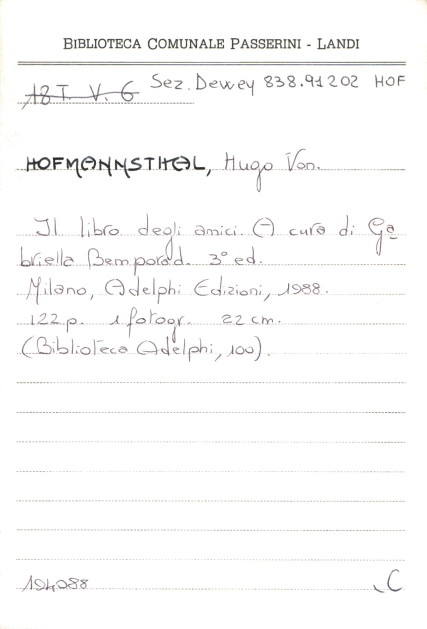 BIBLIOTECA COMUNALE PASSERINI - LANDI
18 I. V. 6 Sez. Dewey 838.91202 HOF
HOFMANNSTHAL, Hugo Von.
Il libro degli amici. A cura di Ga
briella Bemporad. 3° ed.
Milano, Adelphi Edizioni, 1988.
122 p. 1 fotogr. 22 cm.
(Biblioteca Adelphi, 100).
194088 C